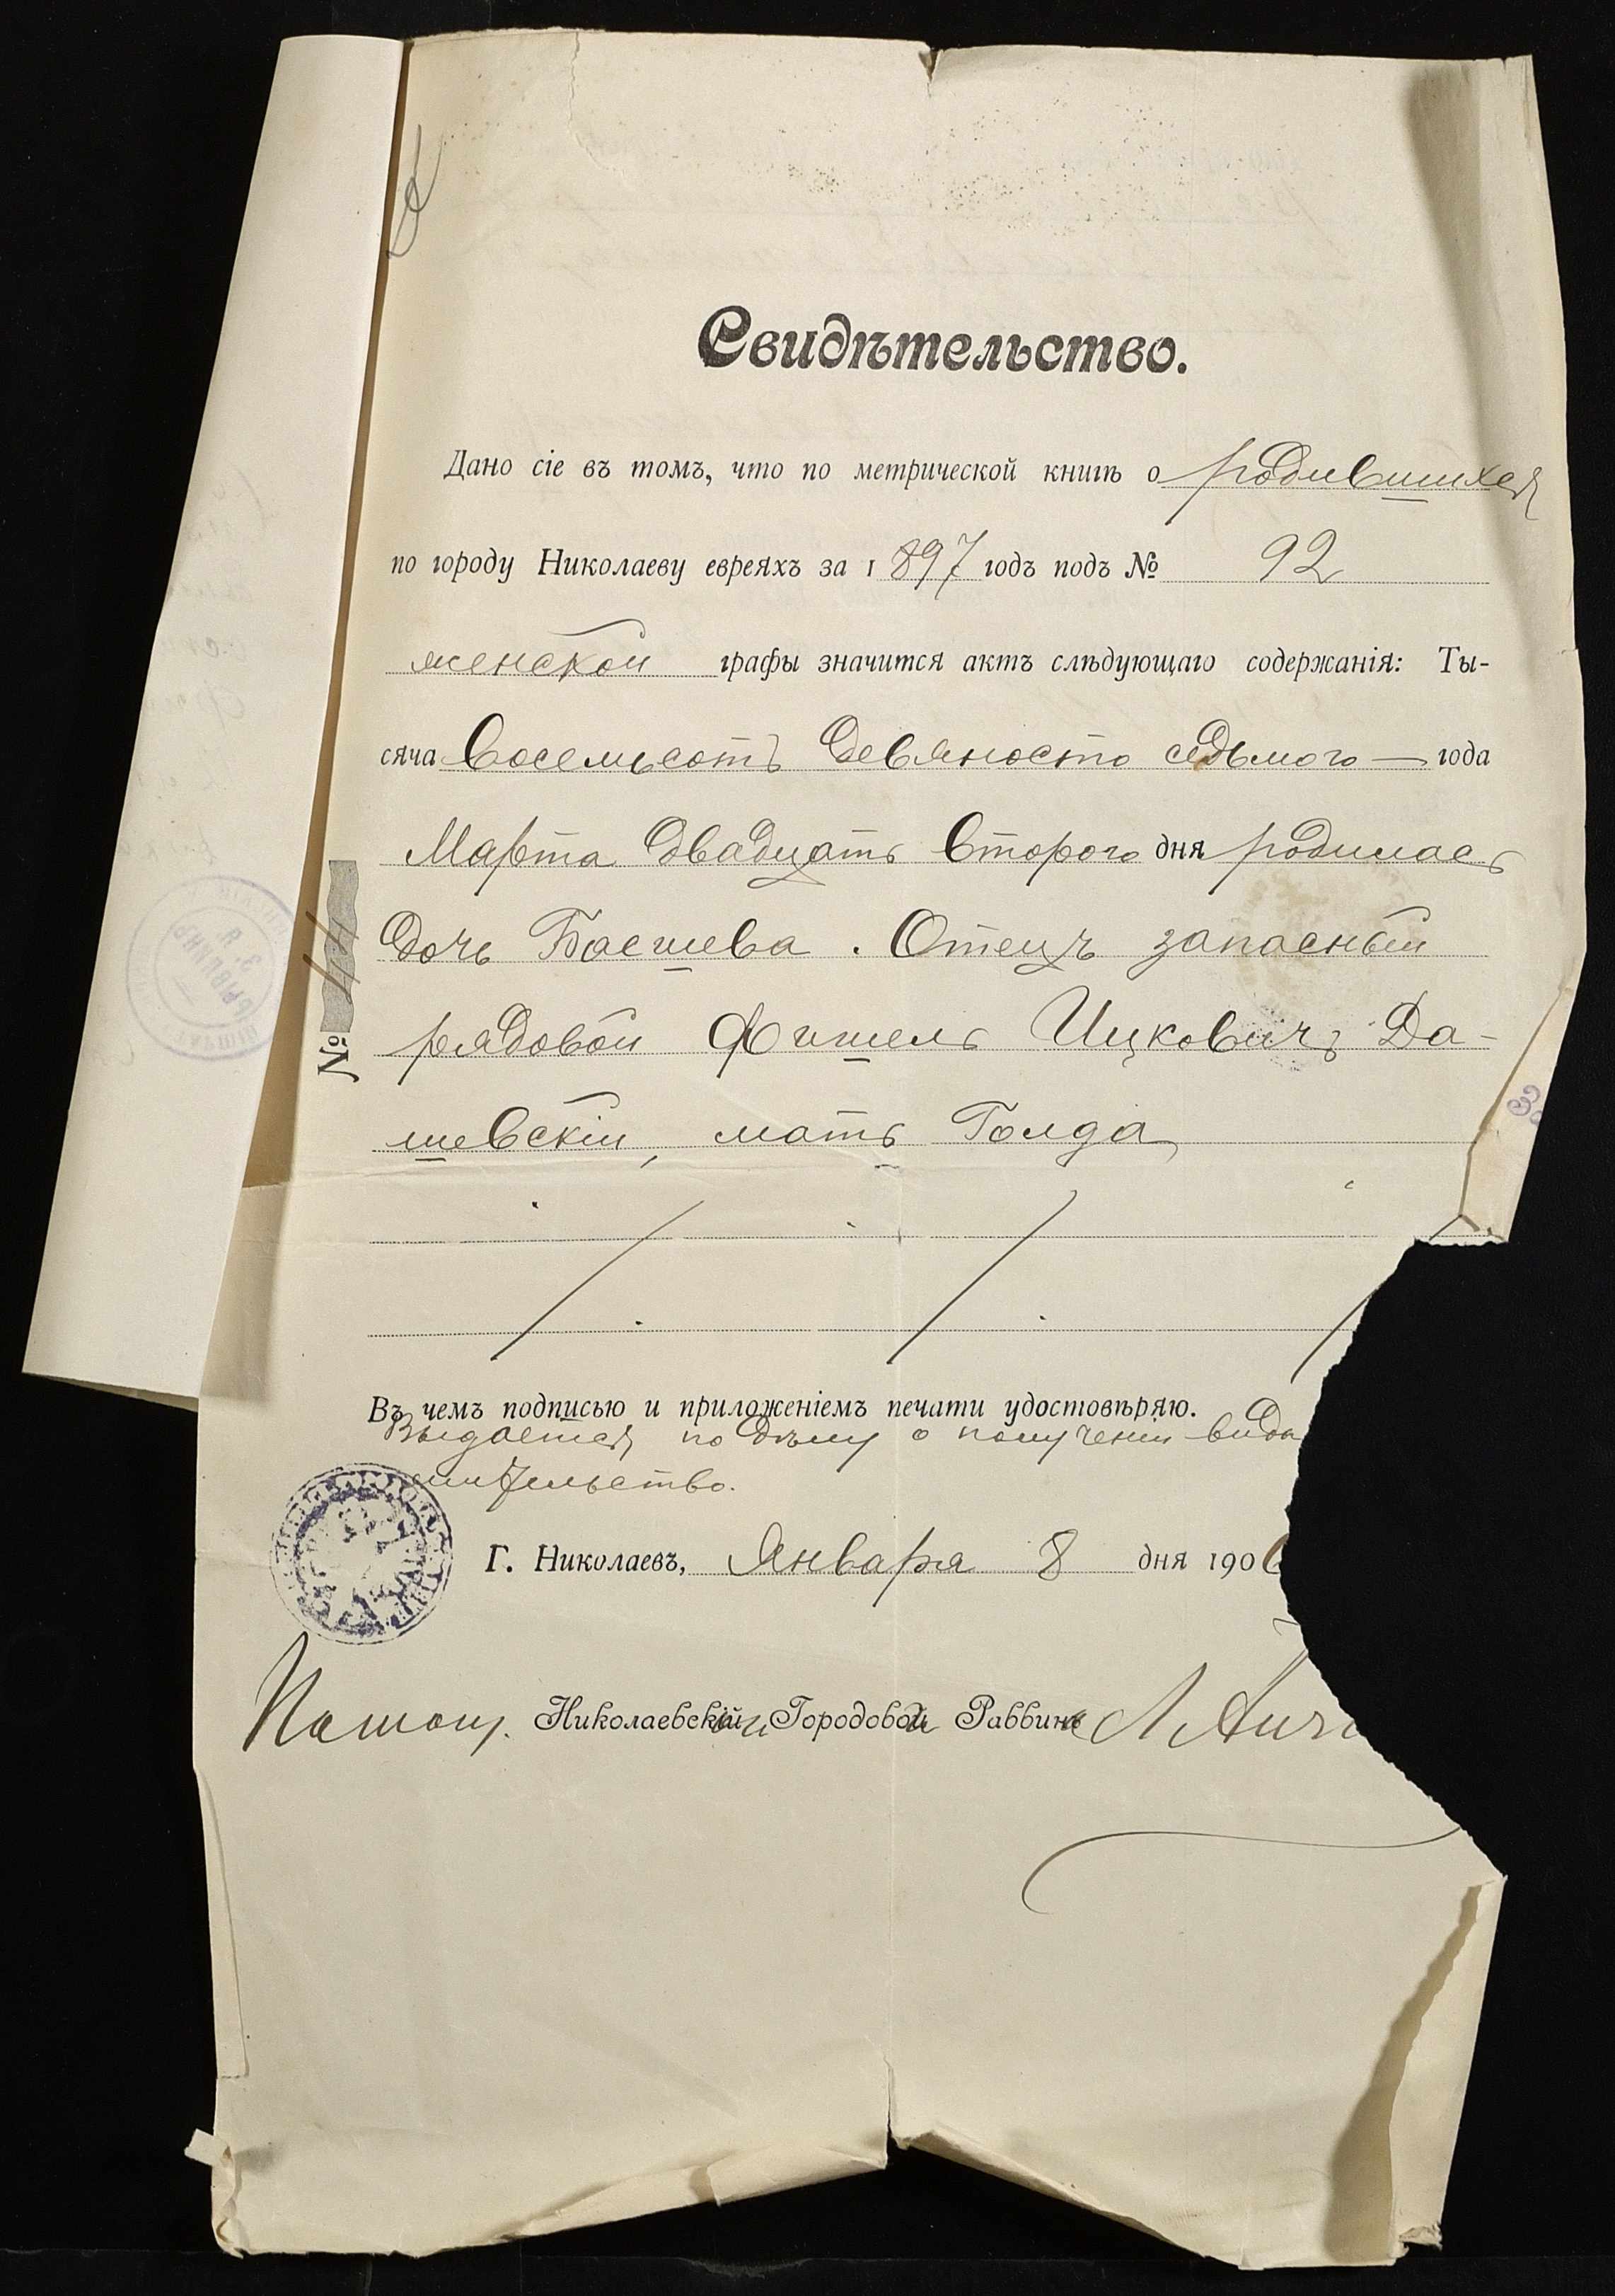 Свидѣтельство.
Дано сіе въ томъ, что по метрической книгѣ о родившихся
по городу Николаеву евреяхъ за 1897 годъ подъ № 92
женской графы значится актъ слѣдующаго содержанія: Ты-
сяча восемьсотъ девяносто седьмого — года
Марта двадцать второго дня родилась
дочь Басшева. Отецъ запасный
рядовой Фишель Ицковичъ Да-
шевскій, мать Голда
№ 44
Въ чемъ подписью и приложеніемъ печати удостовѣряю.
Выдается по дѣлу о полученіи вида
жительство.
Г. Николаевъ, Января 8 дня 190
Помощ. Николаевскаго Городового Раввина Л.